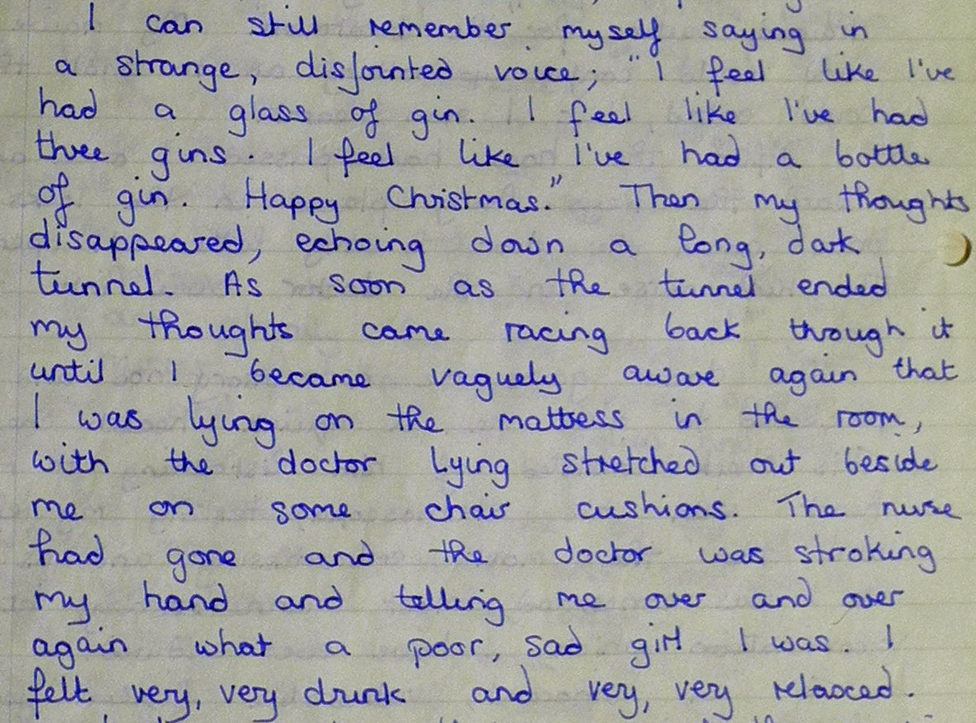 I can still remember myself saying in
a strange, disjointed voice; "I feel like I've
had a glass of gin. I feel like I've had
three gins. I feel like I've had a bottle
of gin. Happy Christmas." Then my thoughts
disappeared, echoing down a long, dark
tunnel. As soon as the tunnel ended
my thoughts came racing back through it
until I became vaguely aware again that
I was lying on the mattress in the room,
with the doctor lying stretched out beside
me on some chair cushions. The nurse
had gone and the doctor was stroking
my hand and telling me over and over
again what a poor, sad girl I was. I
felt very, very drunk and very, very relaxed.